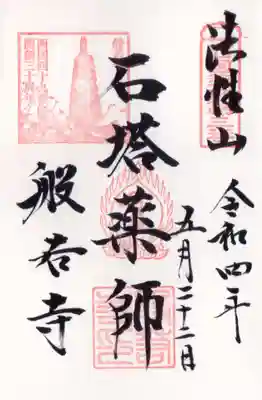 法性山
令和四年
五月二十二日
石塔薬師
般若寺